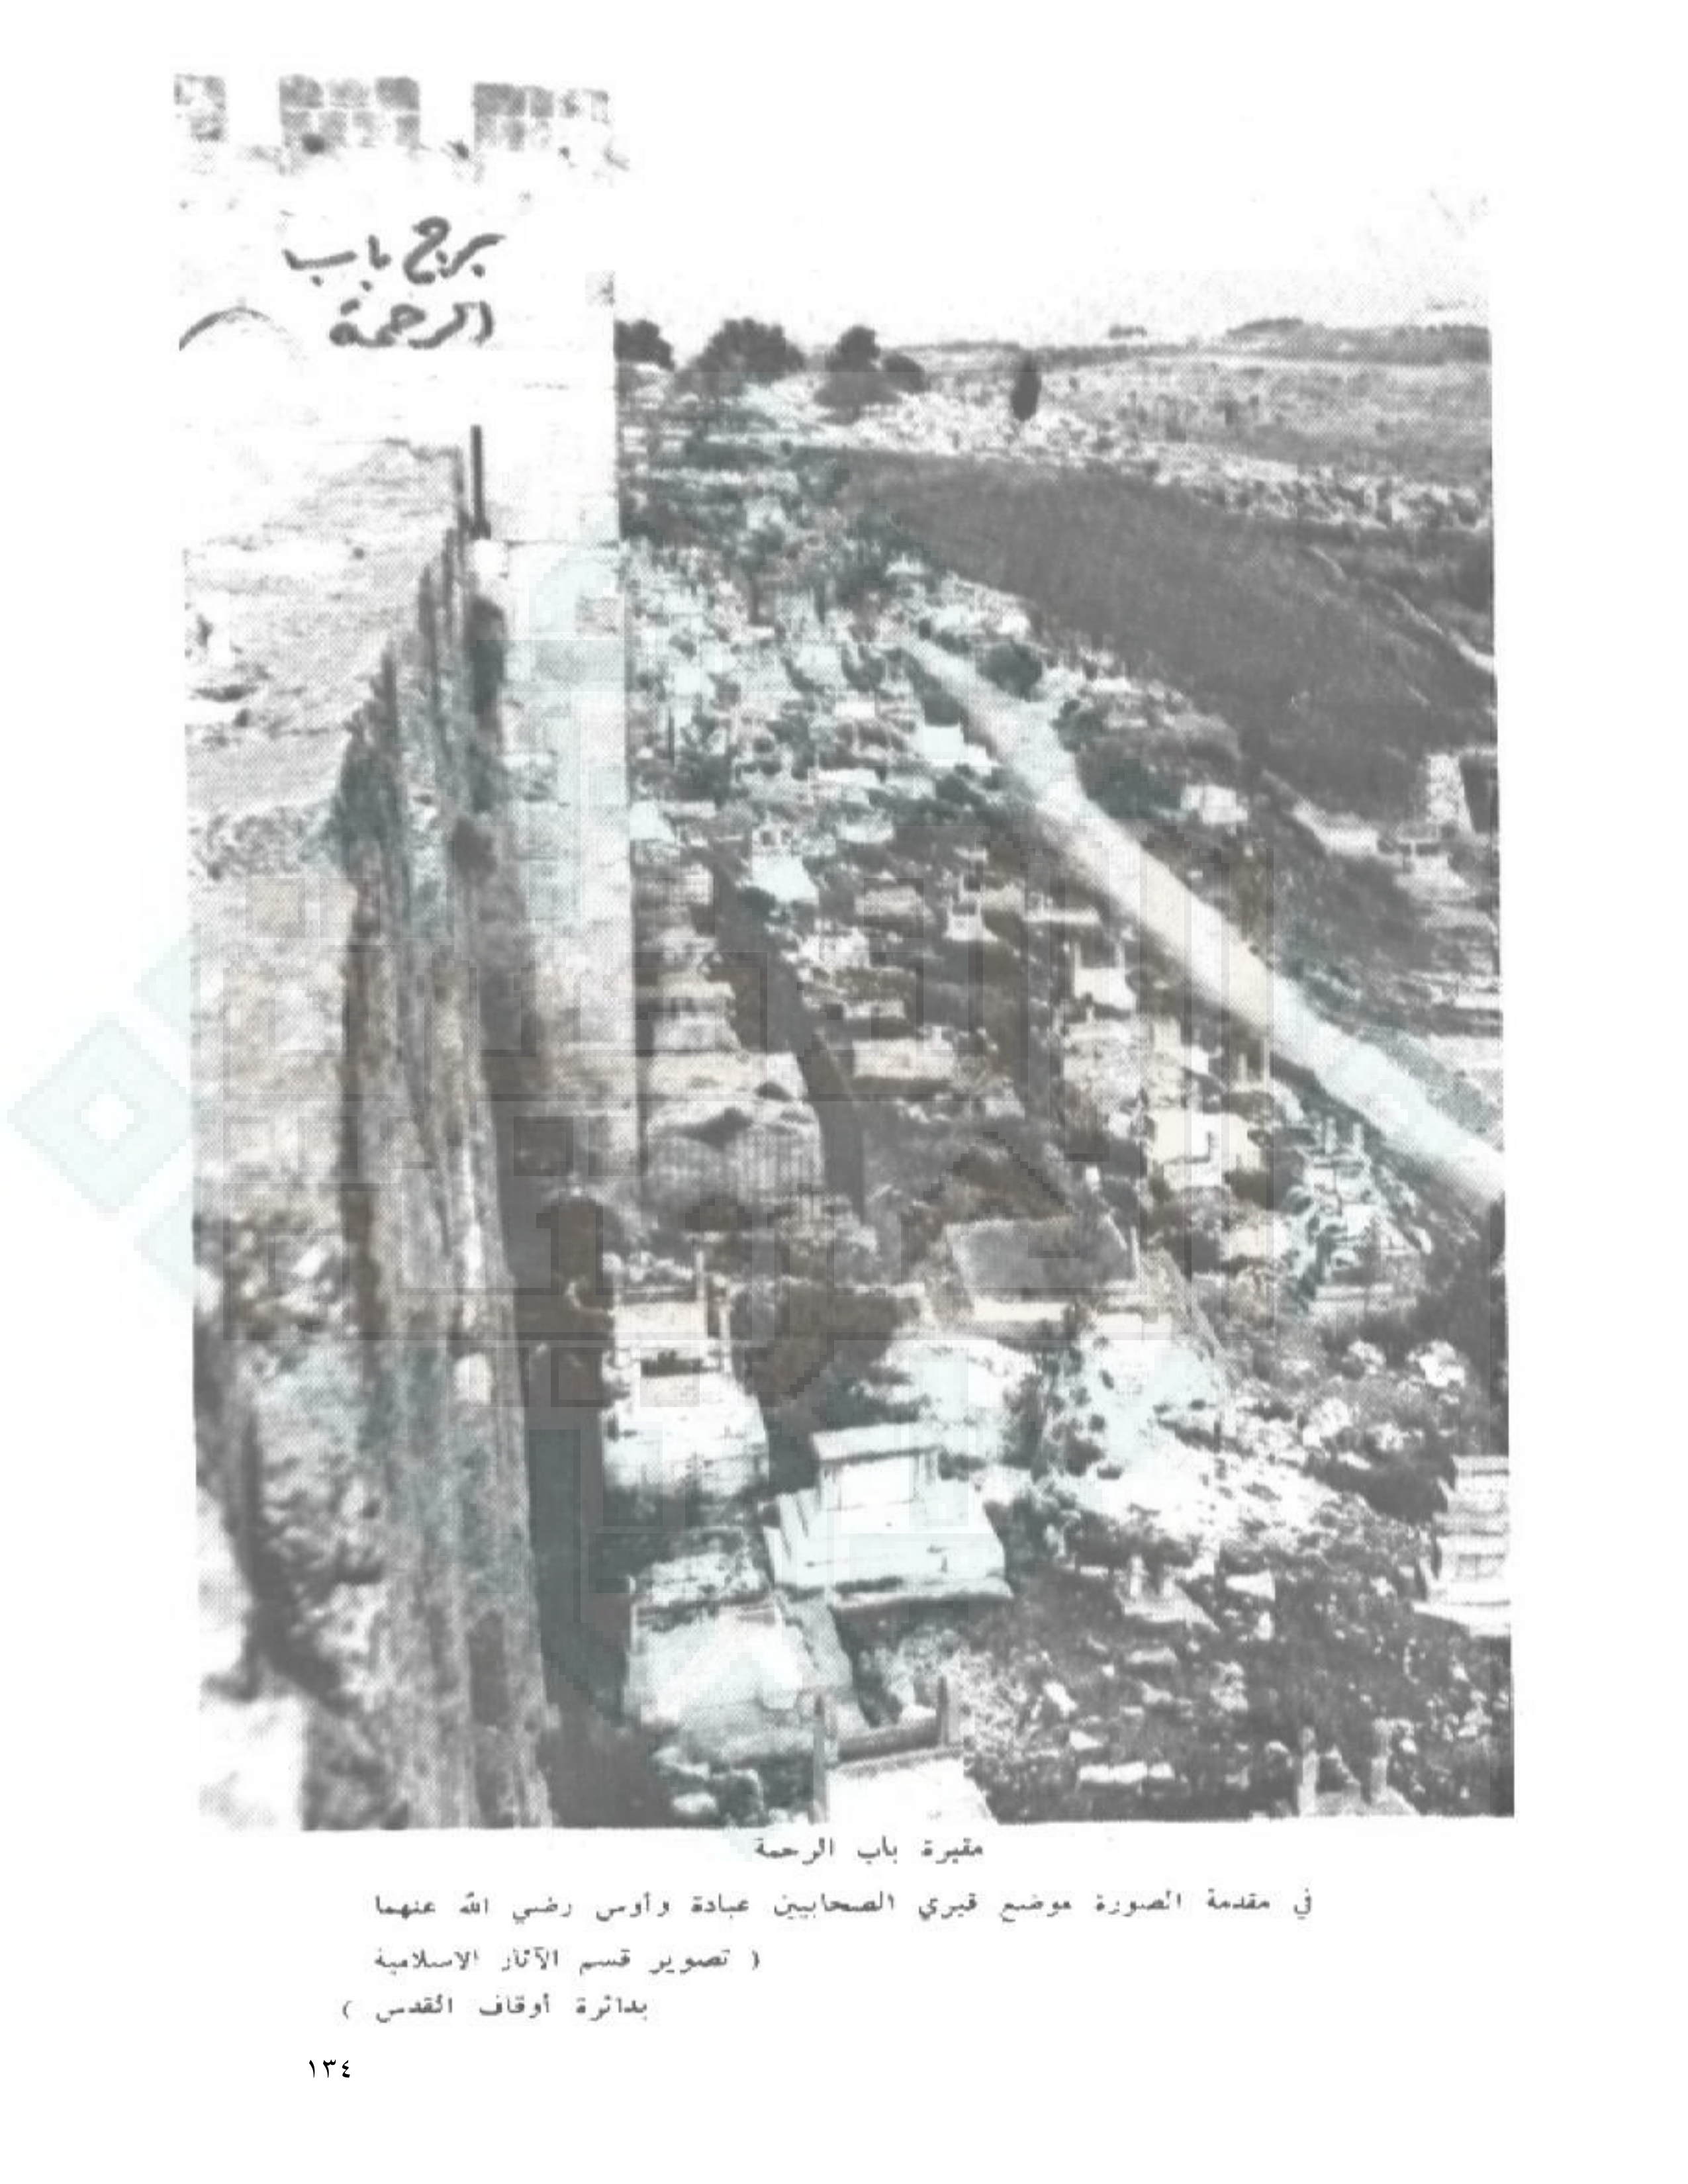 برج باب
الرحمة
مقبرة باب الرحمة
في مقدمة الصورة موضع قبري الصحابيين عبادة وأوس رضي الله عنهما
( تصوير قسم الآثار الاسلامية
بدائرة أوقاف القدس )
١٣٤